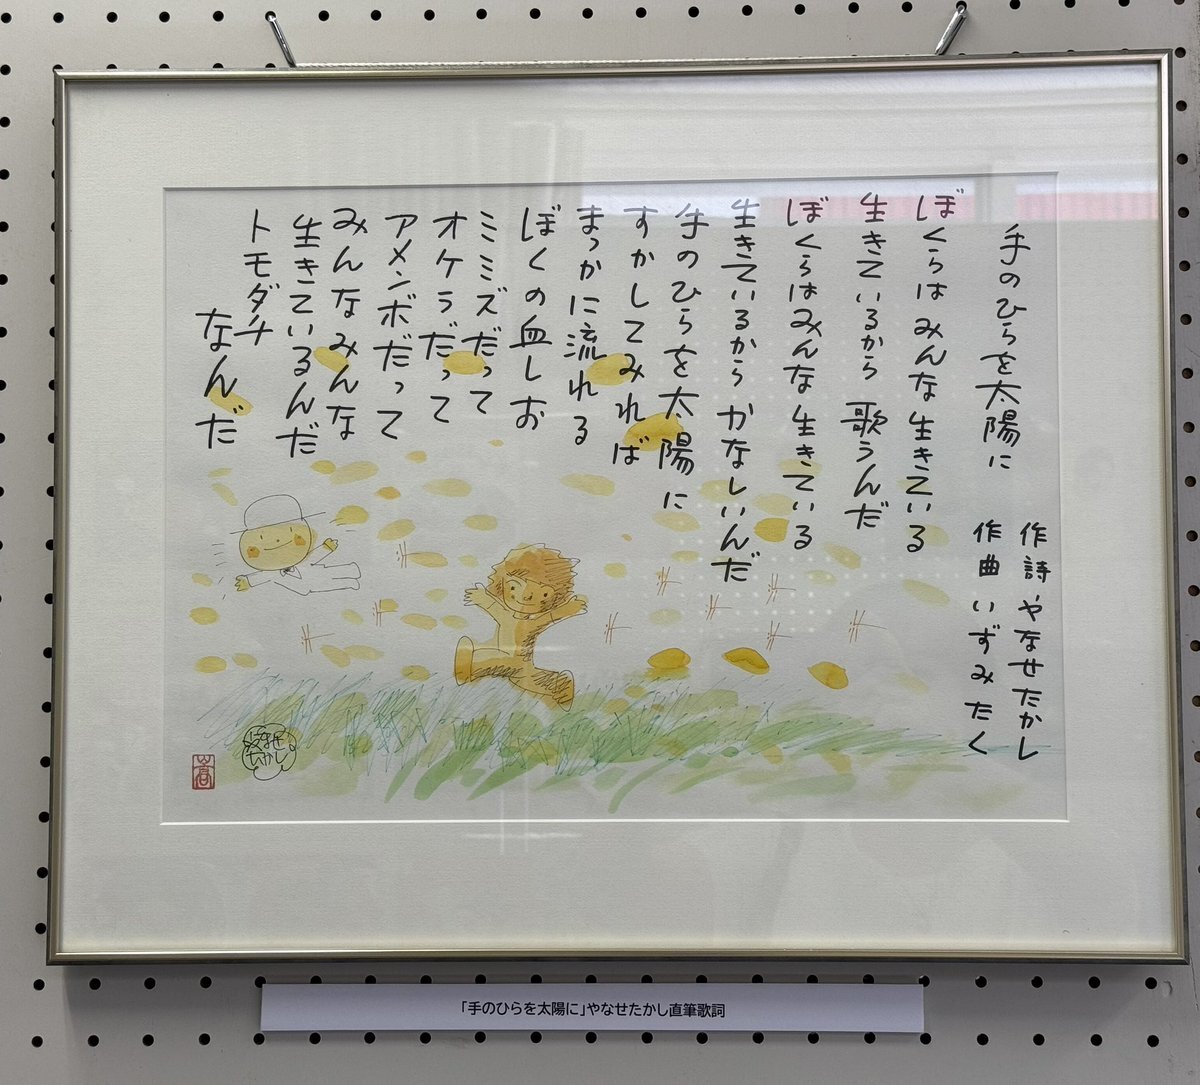 手のひらを太陽に
作詩 やなせたかし
作曲 いずみたく
ぼくらは みんな 生きている
生きているから 歌うんだ
ぼくらはみんな 生きている
生きているから かなしいんだ
手のひらを太陽に
すかしてみれば
まっかに流れる
ぼくの血しお
ミミズだって
オケラだって
アメンボだって
みんな みんな
生きているんだ
トモダチ
なんだ
やなせたかし
「手のひらを太陽に」やなせたかし直筆歌詞